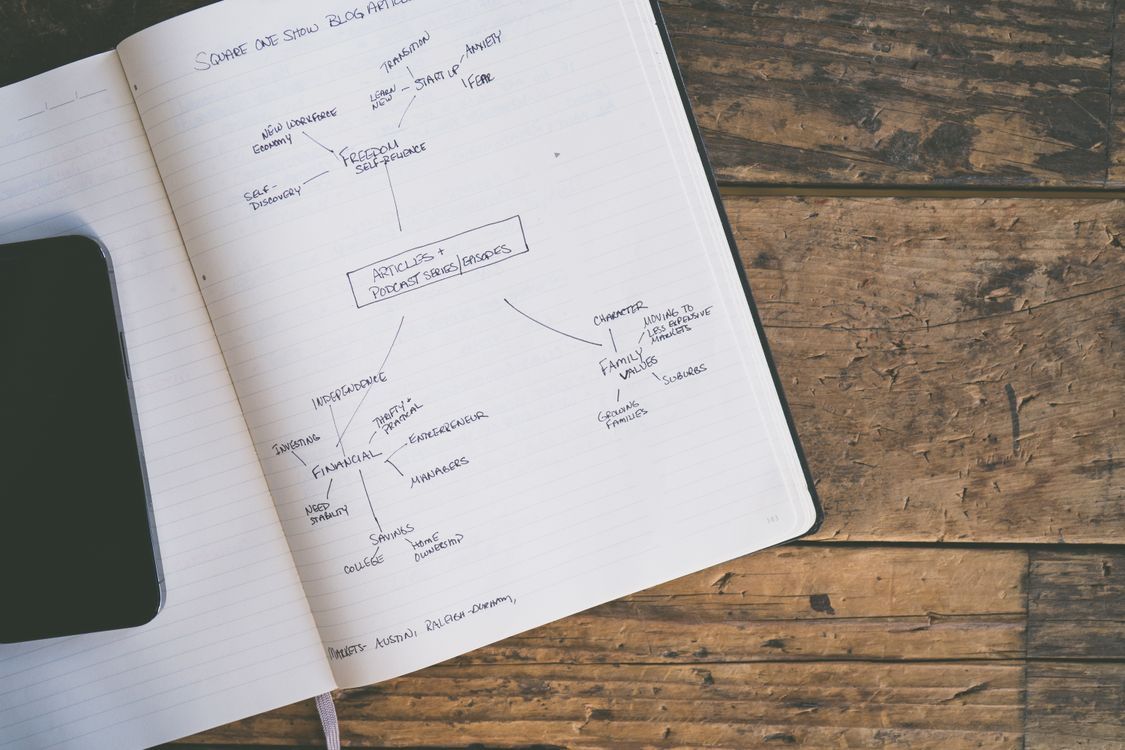 SQUARE ONE SHOW BLOG ARTIC
TRANSITION
ANXIETY
START UP
FEAR
LEARN
NEW
NEW WORKFORCE
ECONOMY
FREEDOM
SELF-RELIENCE
SELF-
DISCOVERY
ARTICLES +
PODCAST SERIES/EPISODES
CHARACTER
MOVING TO
LESS EXPENSIVE
MARKETS
FAMILY
VALUES
SUBURBS
GROWING
FAMILIES
INDEPENDENCE
THRIFTY +
PRATICAL
INVESTING
ENTREPRENEUR
FINANCIAL
MANAGERS
NEED
STABILITY
SAVINGS
HOME
OWNERSHIP
COLLEGE
MARKETS- AUSTIN, RALEIGH-DURHAM,